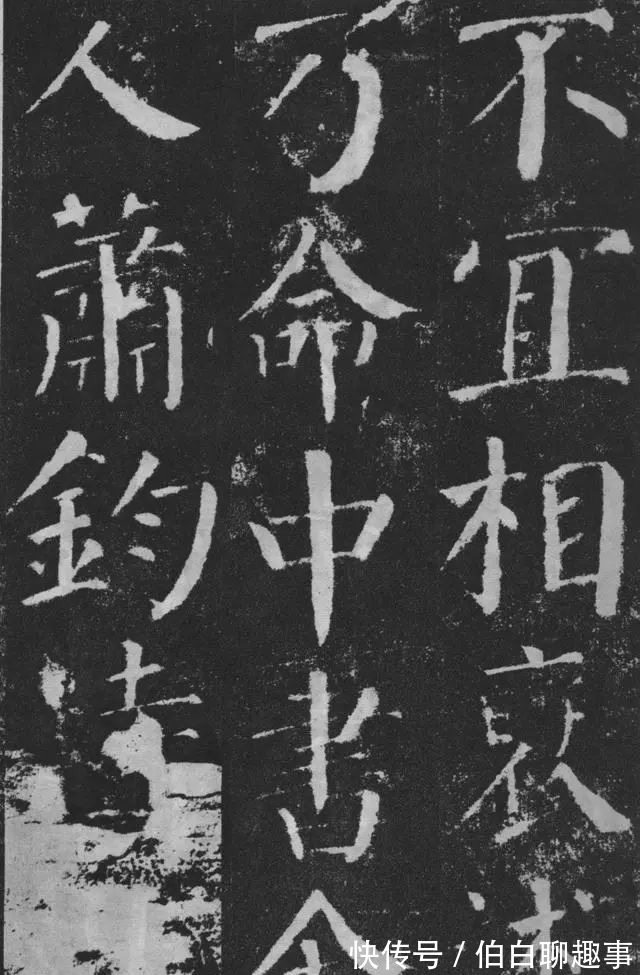 不宜相
乃命中書舍
人蕭鈞
快传号 / 伯白聊趣事